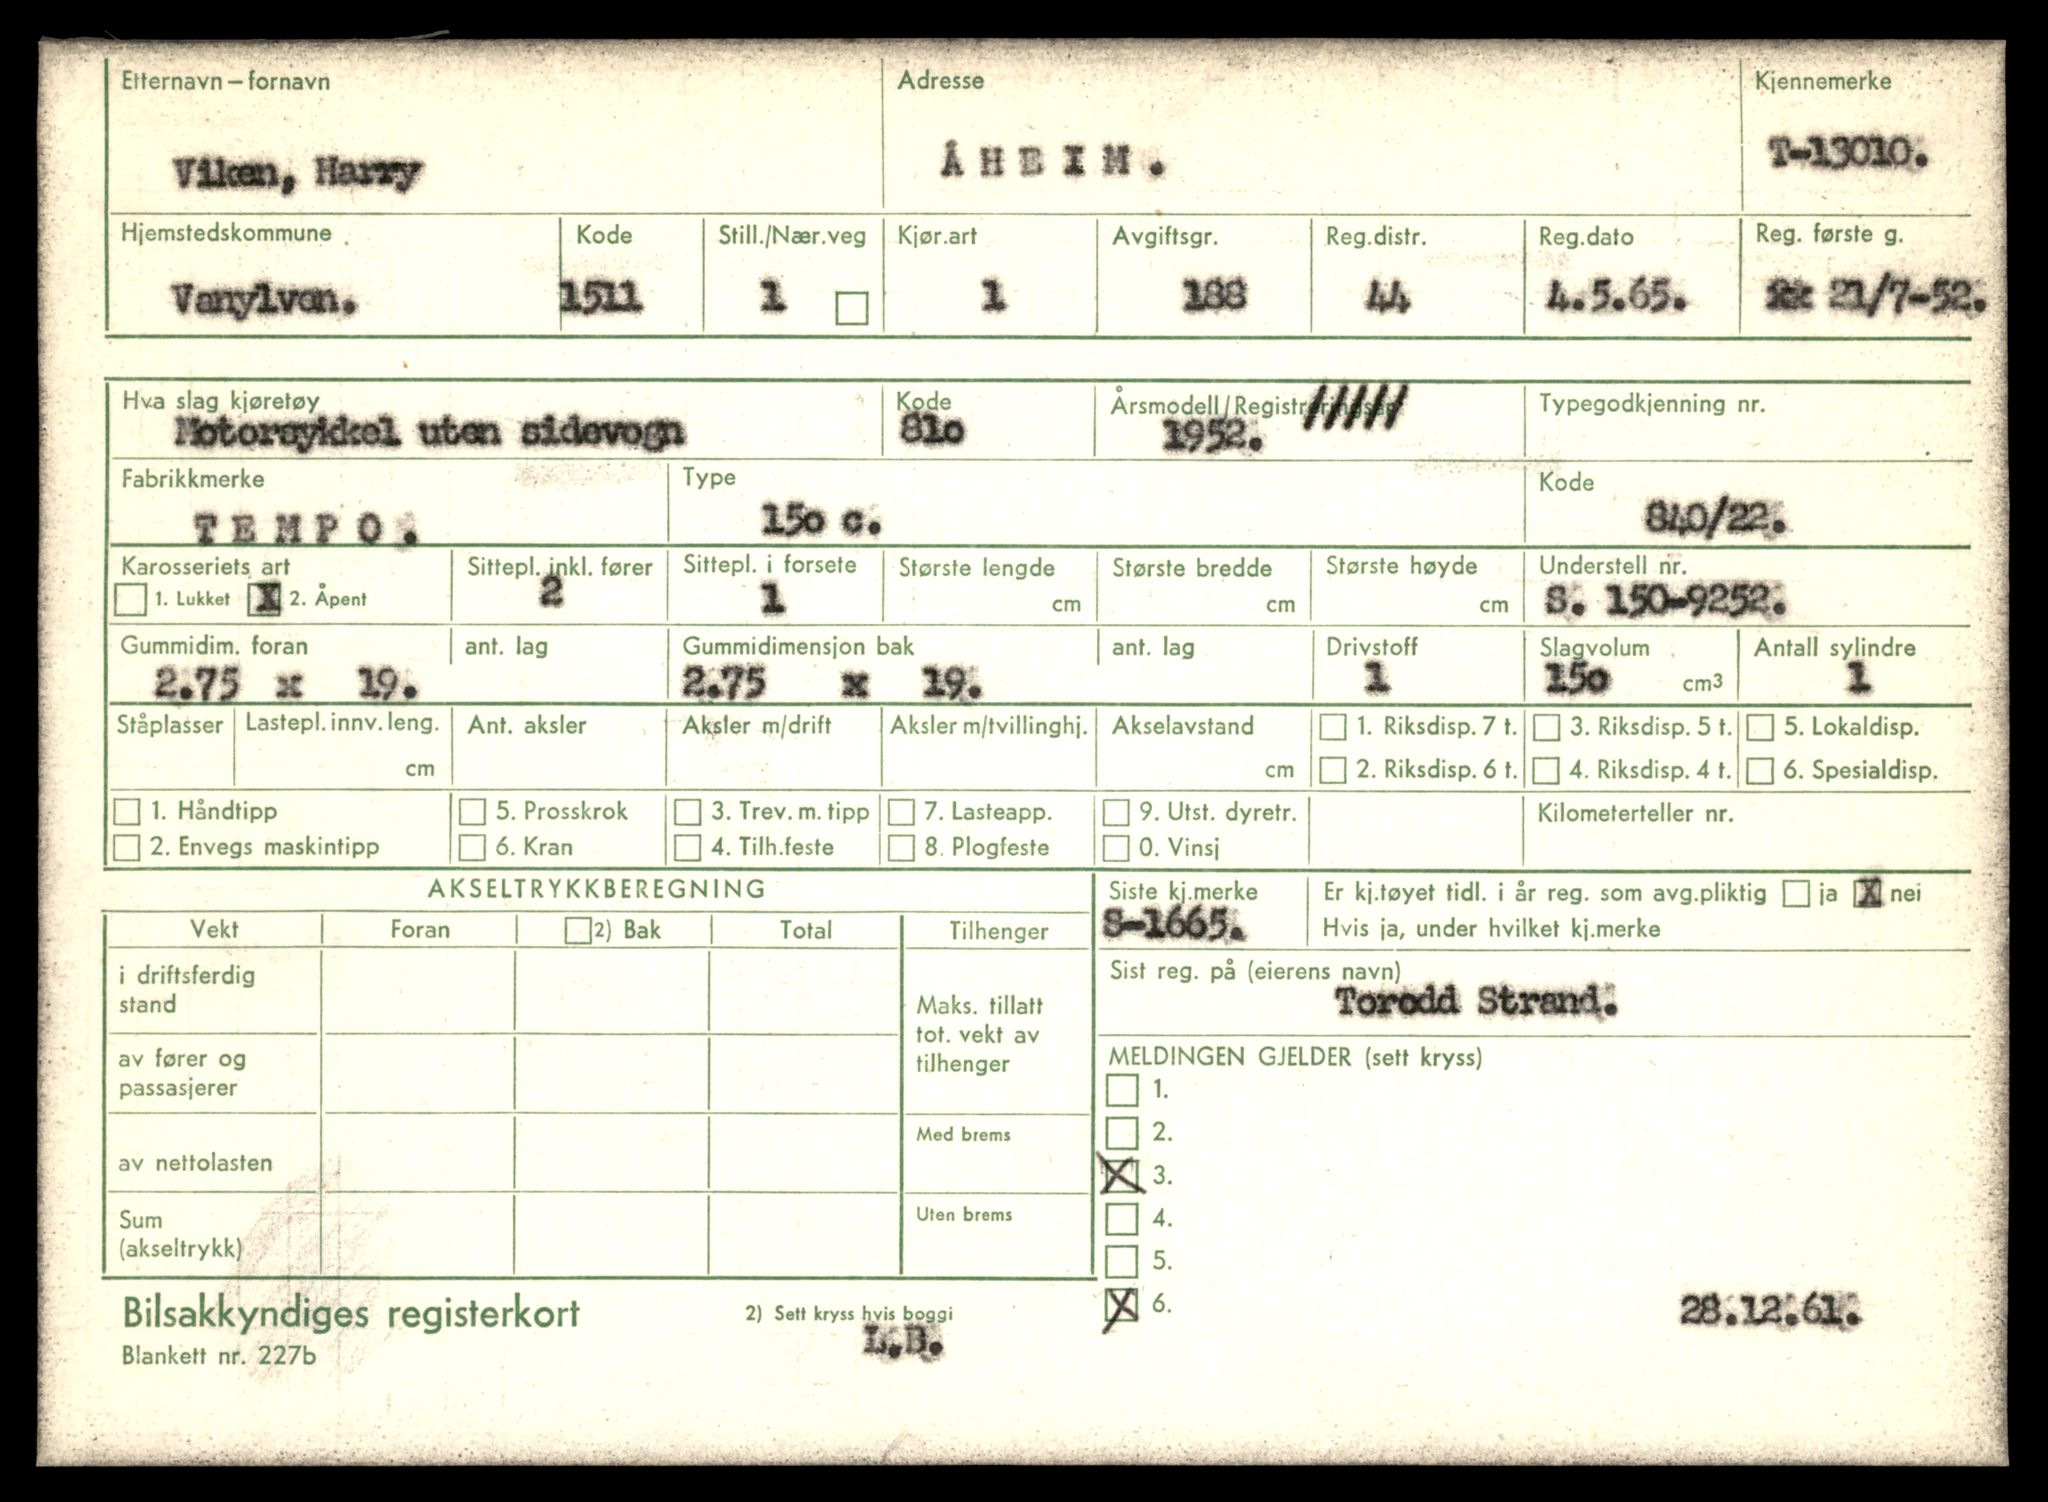 Etternavn – fornavn Adresse Kjennemerke
Viken, Harry ÅHEIM. T-13010.
Hjemstedskommune Kode Still./Nær.veg Kjør.art Avgiftsgr. Reg.distr. Reg.dato Reg. første g.
Vanylven. 1511 1 1 188 44 4.5.65. 21/7-52.
Hva slag kjøretøy Kode Årsmodell/Registreringsår Typegodkjenning nr.
Motorsykkel uten sidevogn 81o 1952.
Fabrikkmerke Type Kode
TEMPO. 15o c. 840/22.
Karosseriets art Sittepl. inkl. fører Sittepl. i forsete Største lengde Største bredde Største høyde Understell nr.
1. Lukket X 2. Åpent 2 1 cm cm cm S. 150-9252.
Gummidim. foran ant. lag Gummidimensjon bak ant. lag Drivstoff Slagvolum Antall sylindre
2.75 x 19. 2.75 x 19. 1 15o cm3 1
Ståplasser Lastepl. innv. leng. Ant. aksler Aksler m/drift Aksler m/tvillinghj. Akselavstand 1. Riksdisp. 7 t. 3. Riksdisp. 5 t. 5. Lokaldisp.
cm cm 2. Riksdisp. 6 t. 4. Riksdisp. 4 t. 6. Spesialdisp.
1. Håndtipp 5. Prosskrok 3. Trev. m. tipp 7. Lasteapp. 9. Utst. dyretr. Kilometerteller nr.
2. Envegs maskintipp 6. Kran 4. Tilh.feste 8. Plogfeste 0. Vinsj
AKSELTRYKKBEREGNING Siste kj.merke Er kj.tøyet tidl. i år reg. som avg.pliktig ja X nei
S-1665. Hvis ja, under hvilket kj.merke
Vekt Foran 2) Bak Total Tilhenger
i driftsferdig
stand
Sist reg. på (eierens navn)
Torodd Strand.
Maks. tillatt
tot. vekt av
tilhenger
av fører og
passasjerer
MELDINGEN GJELDER (sett kryss)
1.
2.
X 3.
4.
5.
X 6.
Med brems
av nettolasten
Uten brems
Sum
(akseltrykk)
28.12.61.
Bilsakkyndiges registerkort 2) Sett kryss hvis boggi
L.B.
Blankett nr. 227b